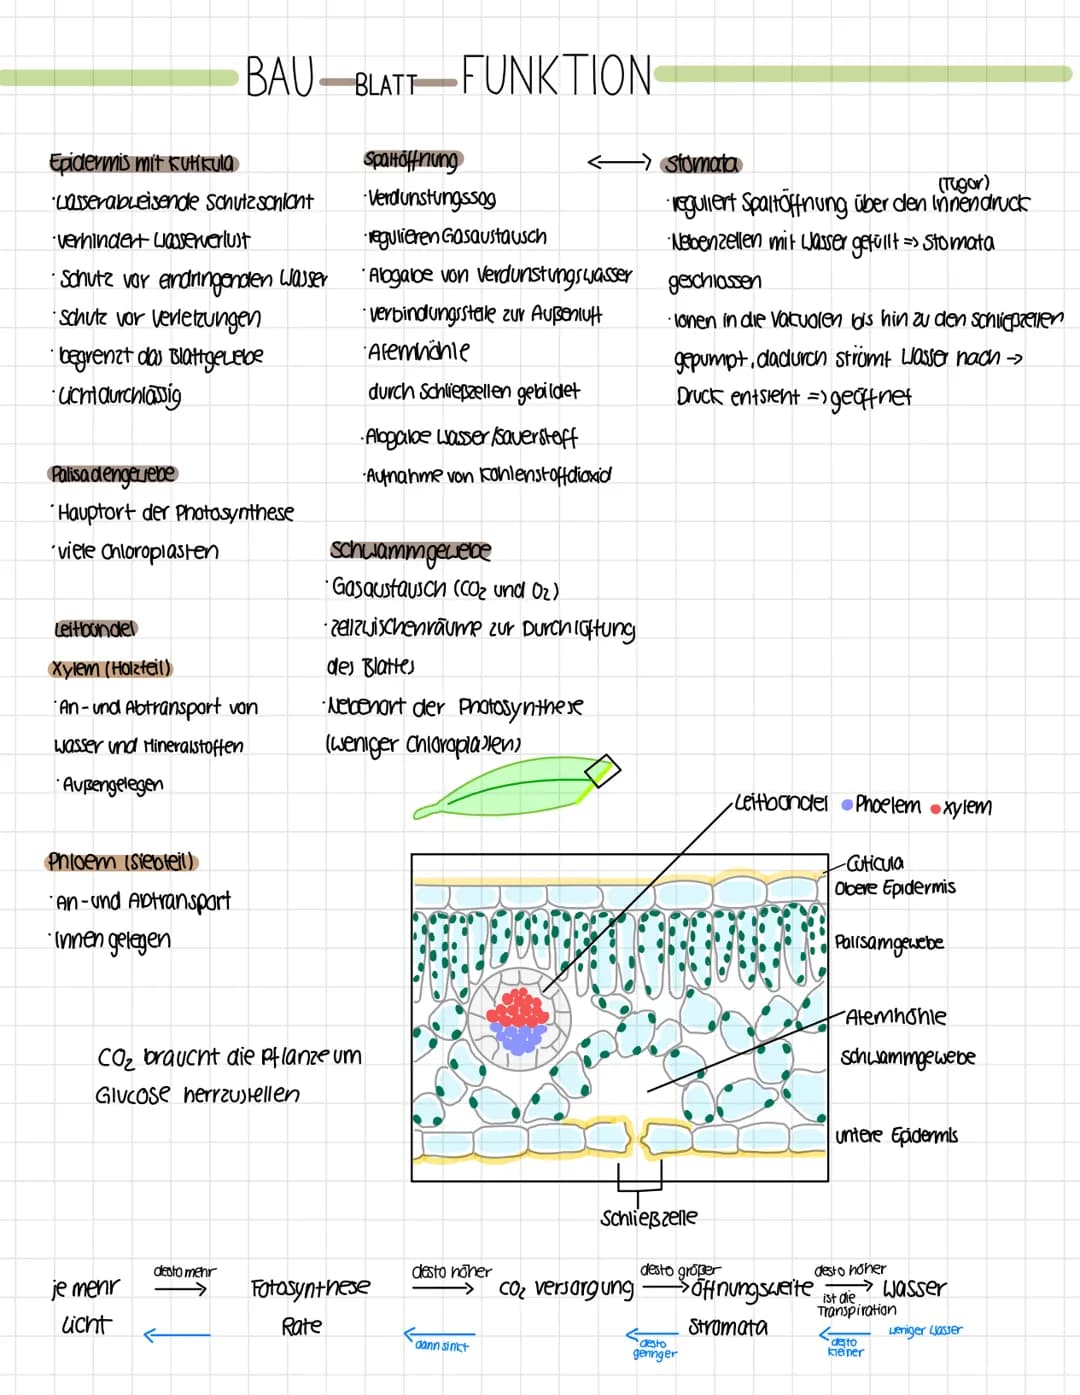 BAU BLATT FUNKTION
Epidermis mit Kutikula
·wasserabweisende Schutzschicht
·verhindert Wasserverlust
·Schutz vor eindringenden Wasser
·Schutz vor Verletzungen
·begrenzt das Blattgewebe
·Lichtdurchlässig
Palisadengewebe
·Hauptort der Photosynthese
·viele Chloroplasten
Leitbündel
Xylem (Holzteil)
·An- und Abtransport von
Wasser und Mineralstoffen
·Außengelegen
Phloem (Siebteil)
·An- und Abtransport
·Innen gelegen
CO₂ braucht die Pflanze um
Glucose herzustellen
Spaltöffnung
·Verdunstungssog
·regulieren Gasaustausch
·Abgabe von Verdunstungswasser
·Verbindungsstelle zur Außenluft
·Atemhöhle
durch Schließzellen gebildet
·Abgabe Wasser/Sauerstoff
·Aufnahme von Kohlenstoffdioxid
Schwammgewebe
·Gasaustausch (CO₂ und O₂)
·Zellzwischenräume zur Durchlüftung
des Blattes
·Nebenort der Photosynthese
(weniger Chloroplasten)
<-> Stomata
(Tugor)
·reguliert Spaltöffnung über den Innendruck
·Nebenzellen mit Wasser gefüllt => Stomata
geschlossen
·Ionen in die Vakuolen bis hin zu den Schließzellen
gepumpt, dadurch strömt Wasser nach ->
Druck entsteht => geöffnet
Leitbündel Phoelem Xylem
Cuticula
Obere Epidermis
Palisamgewebe
Atemhöhle
Schwammgewebe
untere Epidermis
Schließzelle
je mehr Licht
desto mehr
Fotosynthese Rate
desto höher
dann sinkt
CO₂ Versorgung
desto größer
desto geringer
Öffnungsweite Stromata
desto höher
ist die Transpiration
desto kleiner
Wasser
weniger Wasser